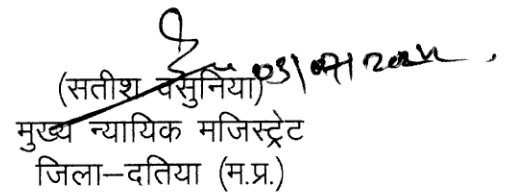 03/07/202
(सतीश वसुनिया)
मुख्य न्यायिक मजिस्ट्रेट
जिला–दतिया (म.प्र.)